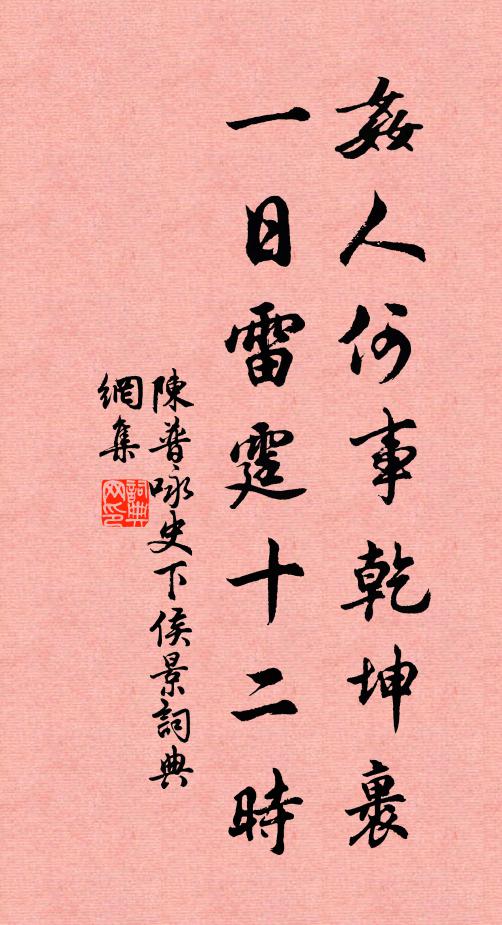 姦人何事乾坤裹
一日雷霆十二時
陳普咏史下侯景詞典
網集
詞典網印